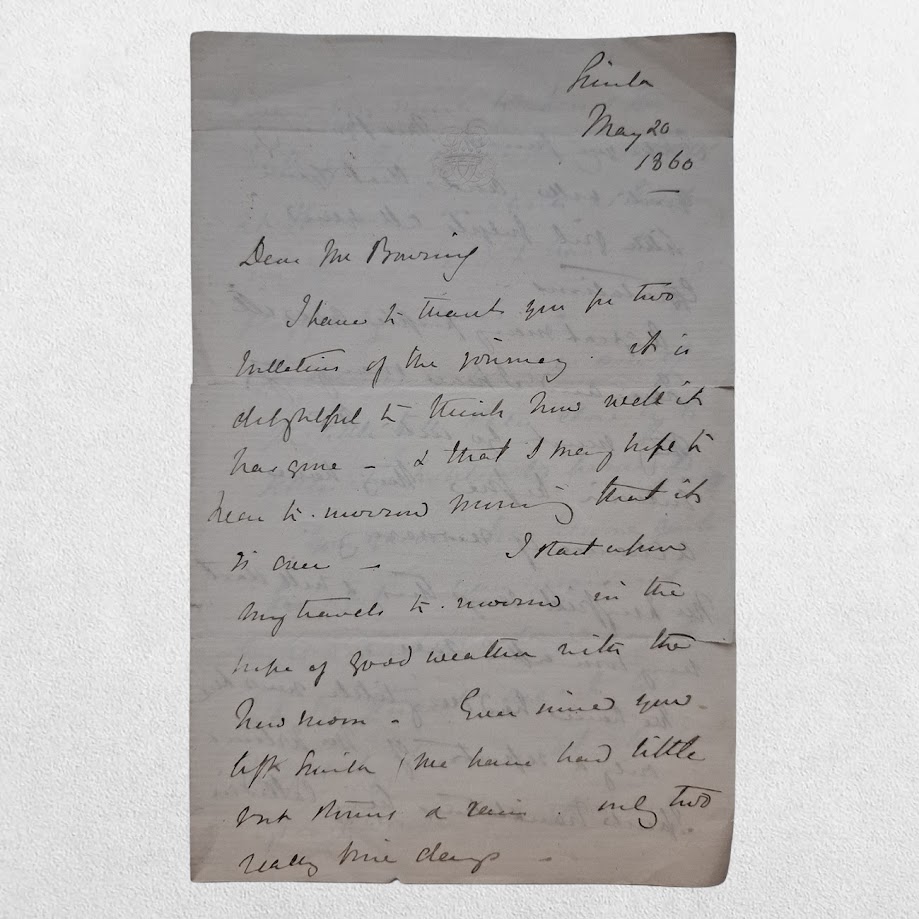 Simla
May 20
1860
Dear Mr Bowring
I have to thank you for two
bulletins of the journey. it is
delightful to think how well it
has gone - & that I may hope to
hear to-morrow morning that it
is over - I start upon
my travels to-morrow in the
hope of good weather with the
new moon - Ever since you
left Simla, we have had little
but storms & rain. only two
really fine days -